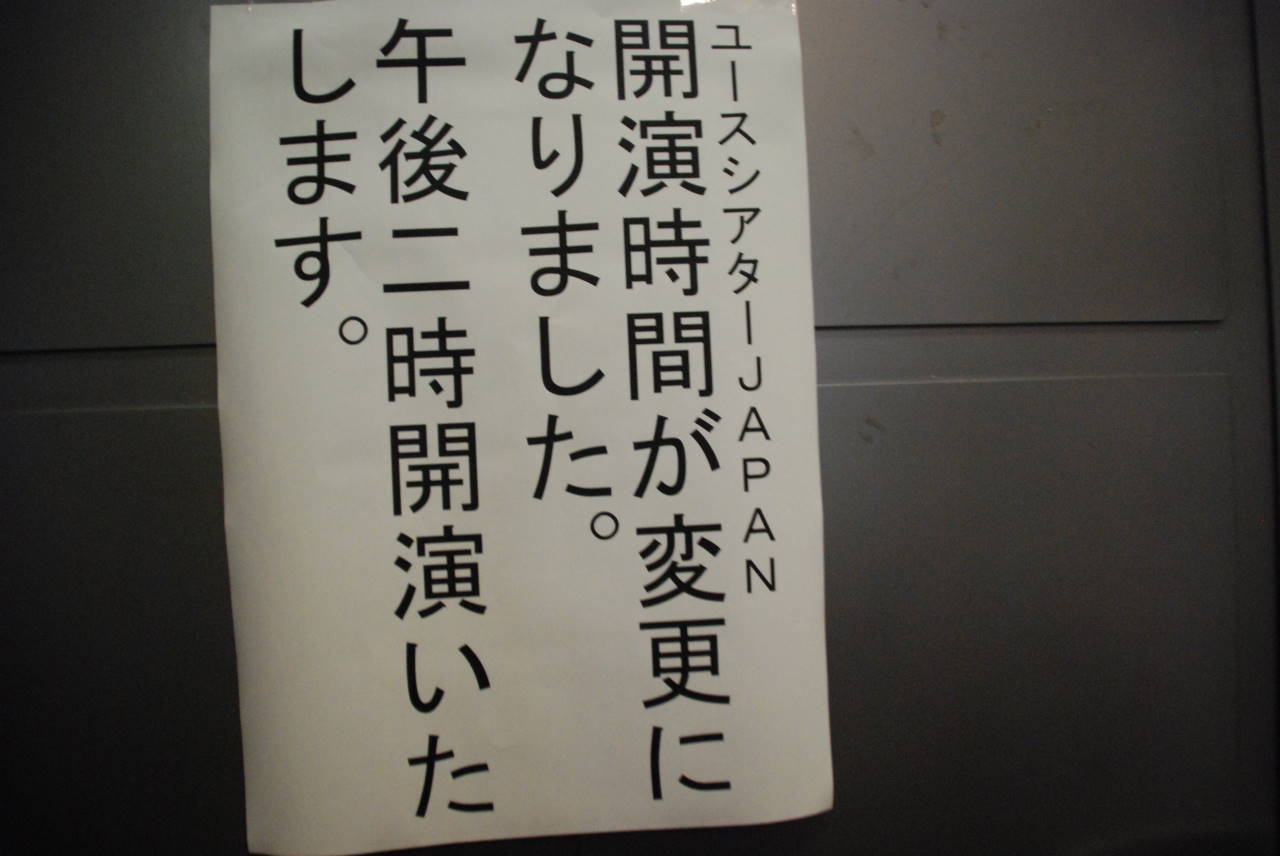 ユースシアターＪＡＰＡＮ
開演時間が変更に
なりました。
午後二時開演いた
します。